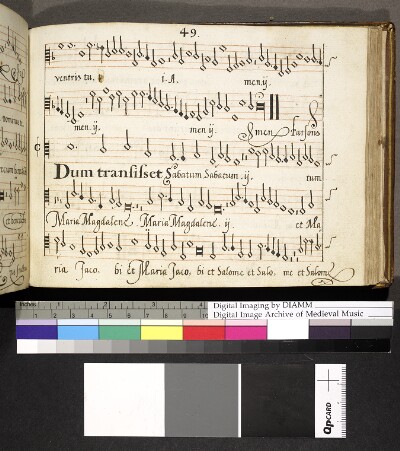 49.
ventris tu. i. A. men. ij.
men. ij. men ij. Amen Parsons
Dum transisset Sabatum Sabatum. ij. tum
Maria Magdalene, Maria Magdalene ij et Ma
ria Jaco. bi et Maria Jaco. bi et Salome et Salo. me et Salome
inches 1 2 3 4
Digital Imaging by DIAMM
Digital Image Archive of Medieval Music
QPCARD